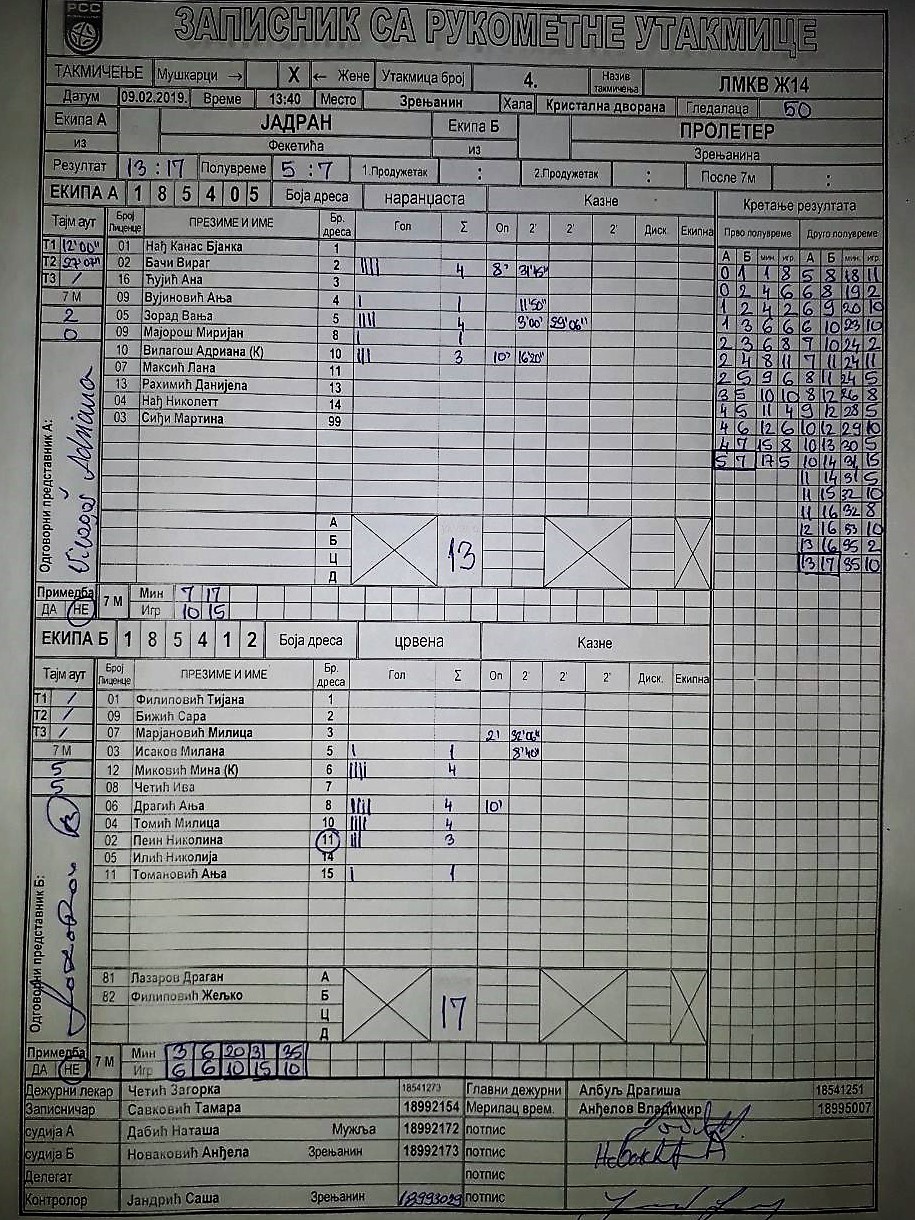 РСС
ЗАПИСНИК СА РУКОМЕТНЕ УТАКМИЦЕ
ТАКМИЧЕЊЕ Мушкарци → X ← Жене Утакмица број 4. Назив такмичења ЛМКВ Ж14
Датум 09.02.2019. Време 13:40 Место Зрењанин Хала Кристална дворана Гледалаца 50
Екипа А ЈАДРАН Екипа Б ПРОЛЕТЕР
из Фекетића из Зрењанина
Резултат 13 : 17 Полувреме 5 : 7 1.Продужетак : 2.Продужетак : После 7м :
ЕКИПА А 1 8 5 4 0 5 Боја дреса наранџаста Казне Кретање резултата
Тајм аут Број Лиценце ПРЕЗИМЕ И ИМЕ Бр. дреса Гол Σ Оп 2' 2' 2' Диск. Екипна Прво полувреме Друго полувреме
А Б мин. игр. А Б мин. игр.
Т1 12'00" 01 Нађ Канас Бјанка 1
Т2 27'07" 02 Бачи Вираг 2 |||| 4 8' 31'45"
Т3 / 16 Ћујић Ана 3
7 М 09 Вујиновић Ања 4 | 1 11'50"
2 05 Зорад Вања 5 |||| 4 9'00" 29'06"
0 09 Мајорош Миријан 8 | 1
10 Вилагош Адриана (К) 10 ||| 3 10' 16'20"
07 Максић Лана 11
13 Рахимић Данијела 13
04 Нађ Николетт 14
03 Сиђи Мартина 99
0 1 1 8 5 8 18 11
0 2 4 6 6 8 19 2
1 2 4 2 6 9 20 10
1 3 6 6 6 10 23 10
2 3 6 8 7 10 24 2
2 4 8 11 7 11 24 11
2 5 9 6 8 11 24 5
3 5 10 10 8 12 26 8
4 5 11 4 9 12 28 5
4 6 12 6 10 12 29 10
4 7 15 8 10 13 30 5
5 7 17 5 10 14 31 15
11 14 31 5
11 15 32 10
11 16 32 8
12 16 33 10
13 16 35 2
13 17 35 10
Одговорни представник А:
Vilagoš Adriana
А
Б
Ц
Д
13
Примедба ДА НЕ 7 М Мин 7 17
Игр 10 15
ЕКИПА Б 1 8 5 4 1 2 Боја дреса црвена Казне
Тајм аут Број Лиценце ПРЕЗИМЕ И ИМЕ Бр. дреса Гол Σ Оп 2' 2' 2' Диск. Екипна
Т1 / 01 Филиповић Тијана 1
Т2 / 09 Бижић Сара 2
Т3 / 07 Марјановић Милица 3 2' 32'06"
7 М 03 Исаков Милана 5 | 1 8'40"
5 12 Миковић Мина (К) 6 |||| 4
5 08 Четић Ива 7
06 Драгић Ања 8 |||| 4 10'
04 Томић Милица 10 |||| 4
02 Пеин Николина 11 ||| 3
05 Илић Николија 14
11 Томановић Ања 15 | 1
Одговорни представник Б:
81 Лазаров Драган А
82 Филиповић Жељко Б
Ц
Д
17
Примедба ДА НЕ 7 М Мин 3 6 20 31 35
Игр 6 6 10 15 10
Дежурни лекар Четић Загорка 18541273 Главни дежурни Албуљ Драгиша 18541251
Записничар Савковић Тамара 18992154 Мерилац врем. Анђелов Владимир 18995007
судија А Дабић Наташа Мужља 18992172 потпис
судија Б Новаковић Анђела Зрењанин 18992173 потпис
Делегат потпис
Контролор Јандрић Саша Зрењанин 18993029 потпис